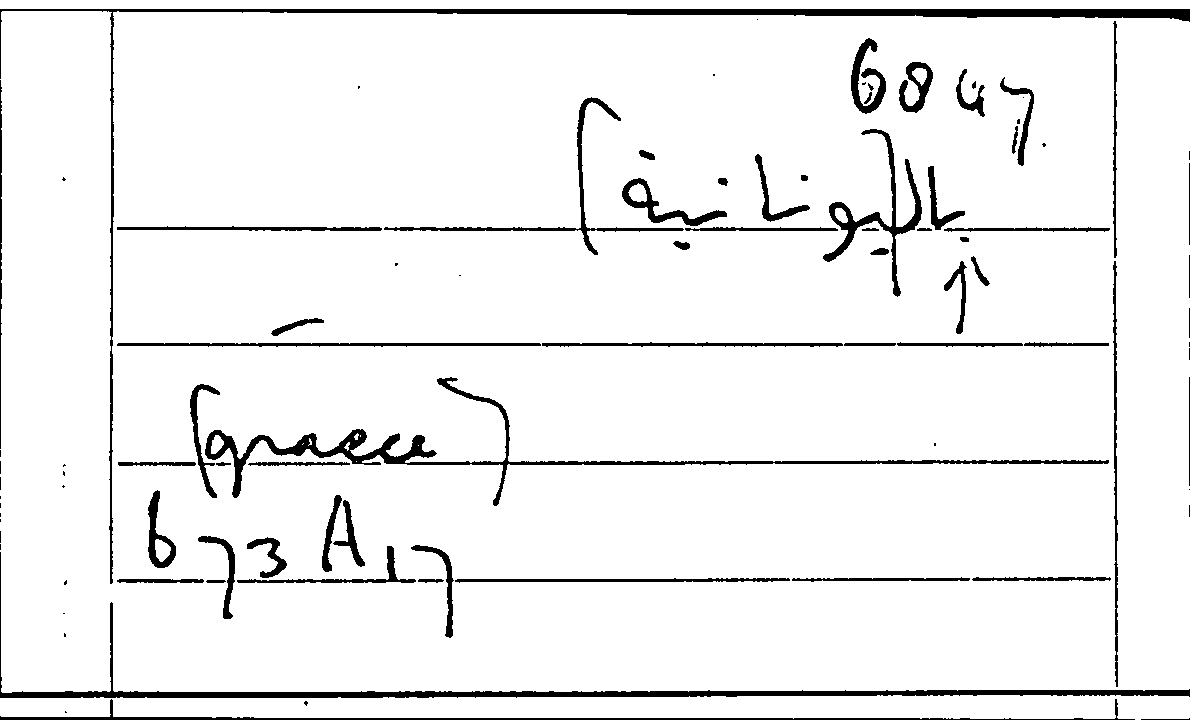 6047
بال[يونانية]
↑
–
[graece]
673 A 17